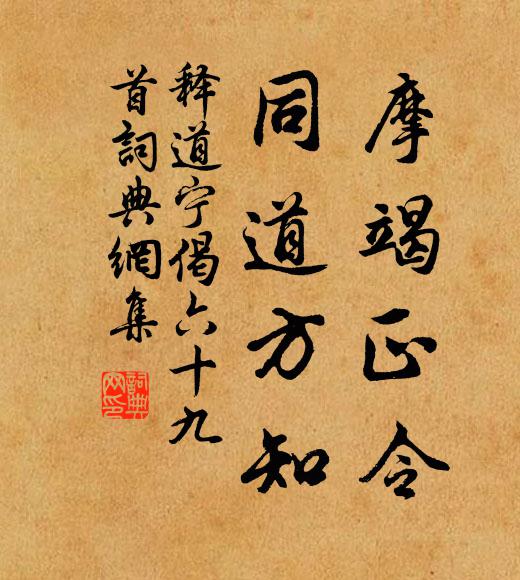 摩竭正令
同道方知
释道宁偈六十九
首詞典網集
詞典
网印